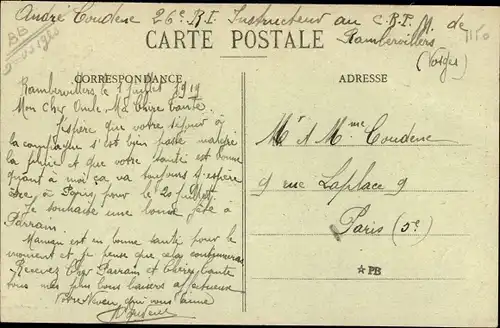 André Coudene 26e R.I. Instructeur au C.R.I. M. de
Rambervillers
(Vosges)
CARTE POSTALE
CORRESPONDANCE
ADRESSE
Rambervillers le 1 juillet 1919
Mon Cher Oncle, Ma Chère Tante.
J'espère que votre séjour à
la campagne s'est bien passé malgré
la pluie et que votre santé est bonne
quant à moi ça va toujours j'espère
être à Paris pour le 20 juillet
Je souhaite une bonne fête à
Parrain
Maman est en bonne santé pour le
moment et je pense que cela continuera
Recevez Cher Parrain et Chère Tante
tous mes plus doux baisers affectueux
Votre neveu qui vous aime
Mr et Mme Coudene
9 rue Laplace 9
Paris (5e)
PB